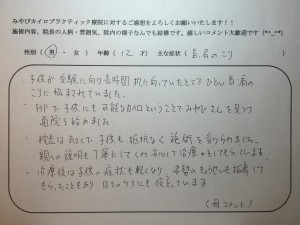 みやびカイロプラクティック療院に対するご感想をよろしくお願いいたします!!
施術内容、院長の人柄・雰囲気、院内の様子なんでも結構です。嬉しいコメント大歓迎です(*^_^*)
性別(男・女) 年齢(12才) 主な症状(首.肩のこり)
・子供が受験に向け長時間机に向っていたことでひどい首肩の
こりに悩まされていました。
・HPで子供にも可能なカイロということでみやびさんを見つけ
通院を始めました。
・院長は気さくで子供も抵抗なく施術を受けられました。
親への説明も丁寧にしてくれ安心して治療
・治療後は子供の症状も軽くなり 姿勢のもちようも指導して
もらったこともあり 日々のくらしにも役立っています
(母コメント)